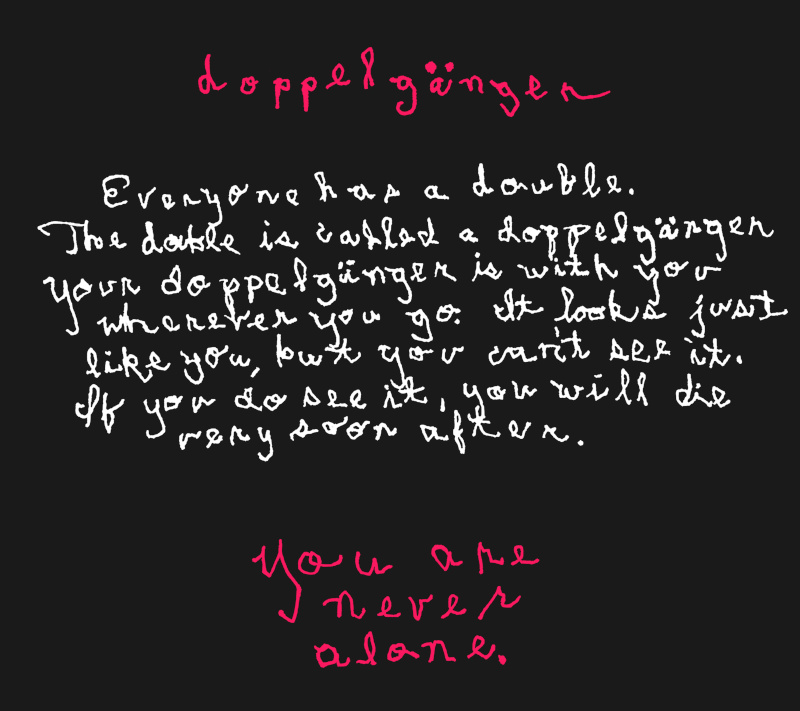 doppelgänger
Everyone has a double.
The double is called a doppelgänger
your doppelgänger is with you
wherever you go. It looks just
like you, but you can't see it.
If you do see it, you will die
very soon after.
you are
never
alone.